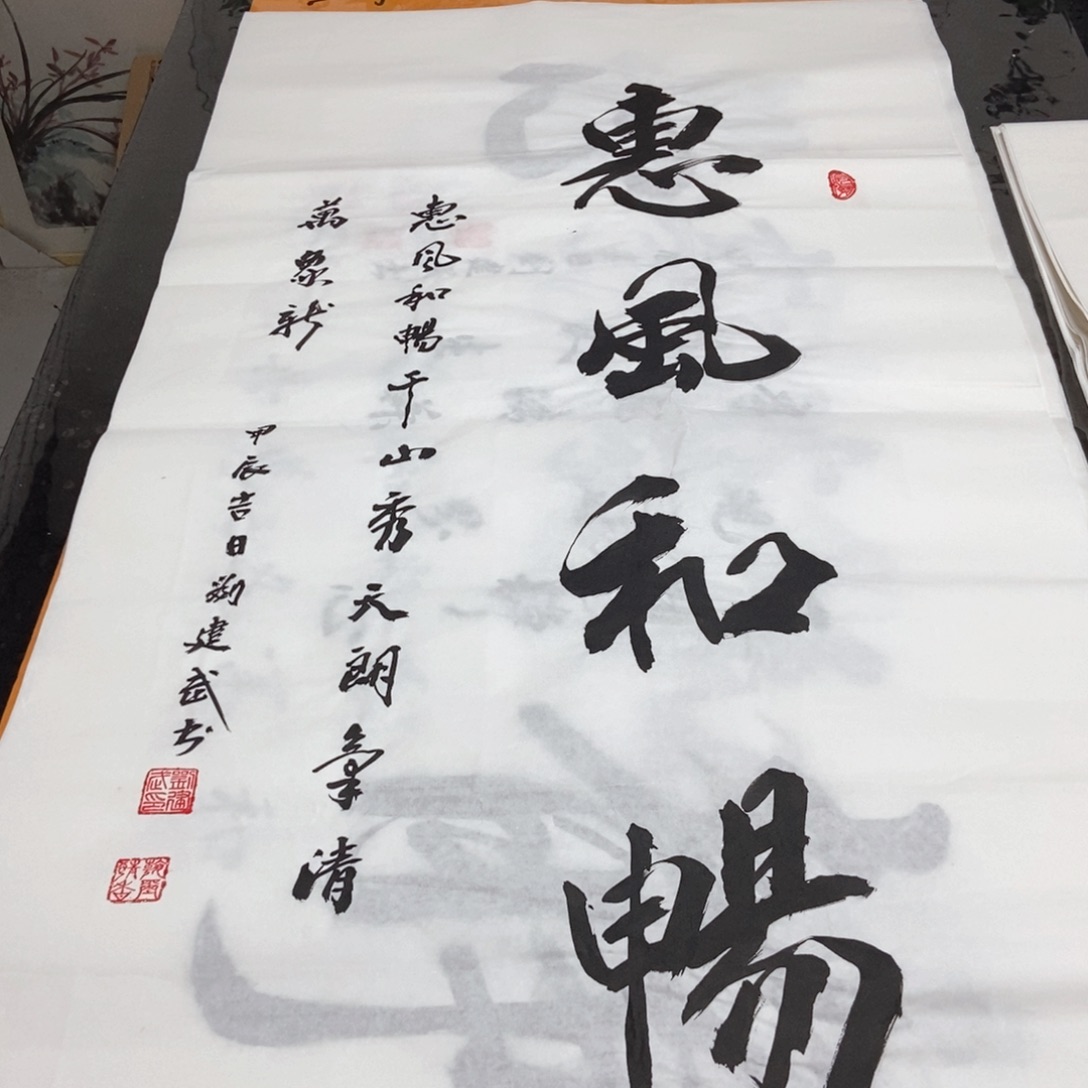 惠風和暢
惠風和暢千山秀天朗氣清
萬象新
甲辰吉日劉建武书